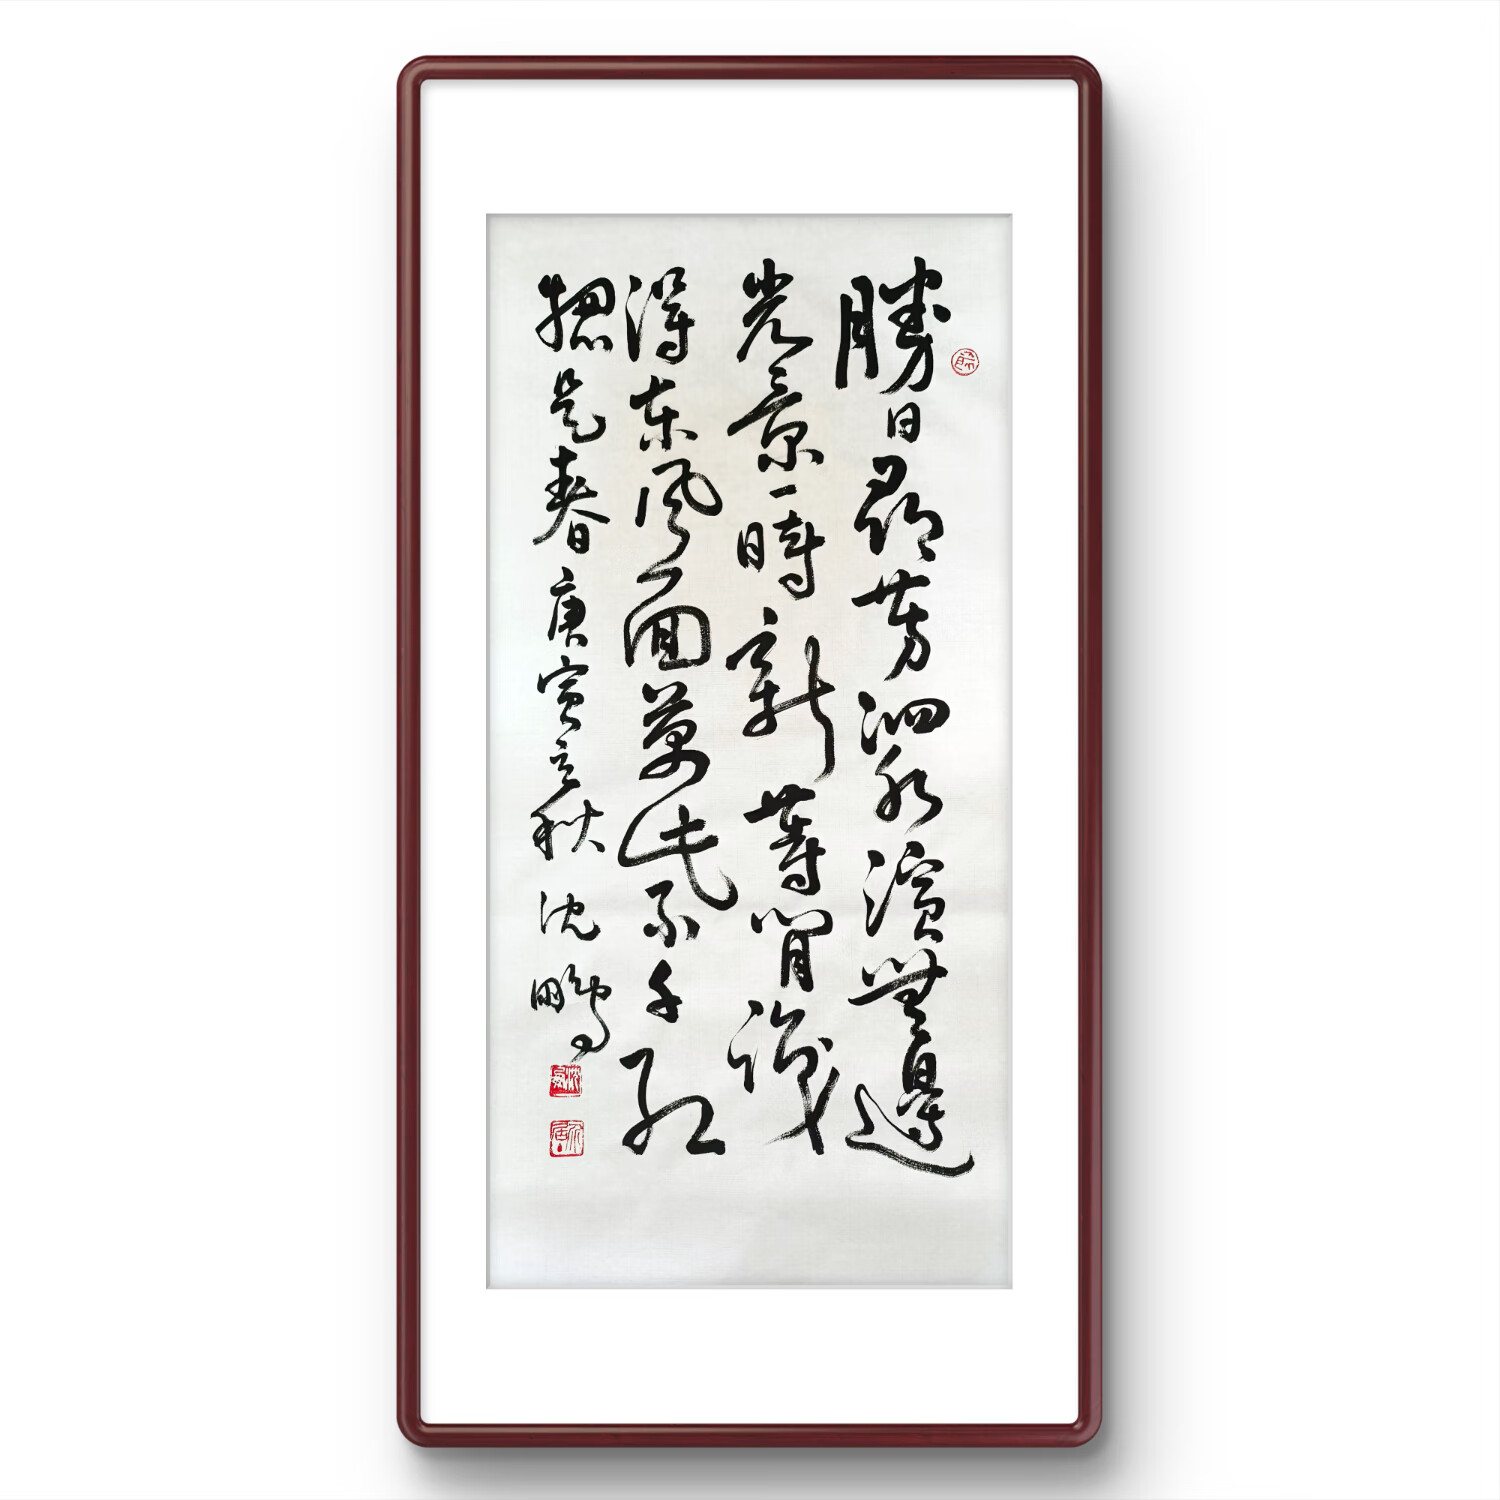 勝日尋芳泗水濱無邊
光景一時新等閒識
得東風面萬紫千紅
揔是春庚寅立秋沈鵬
沈鵬
介居